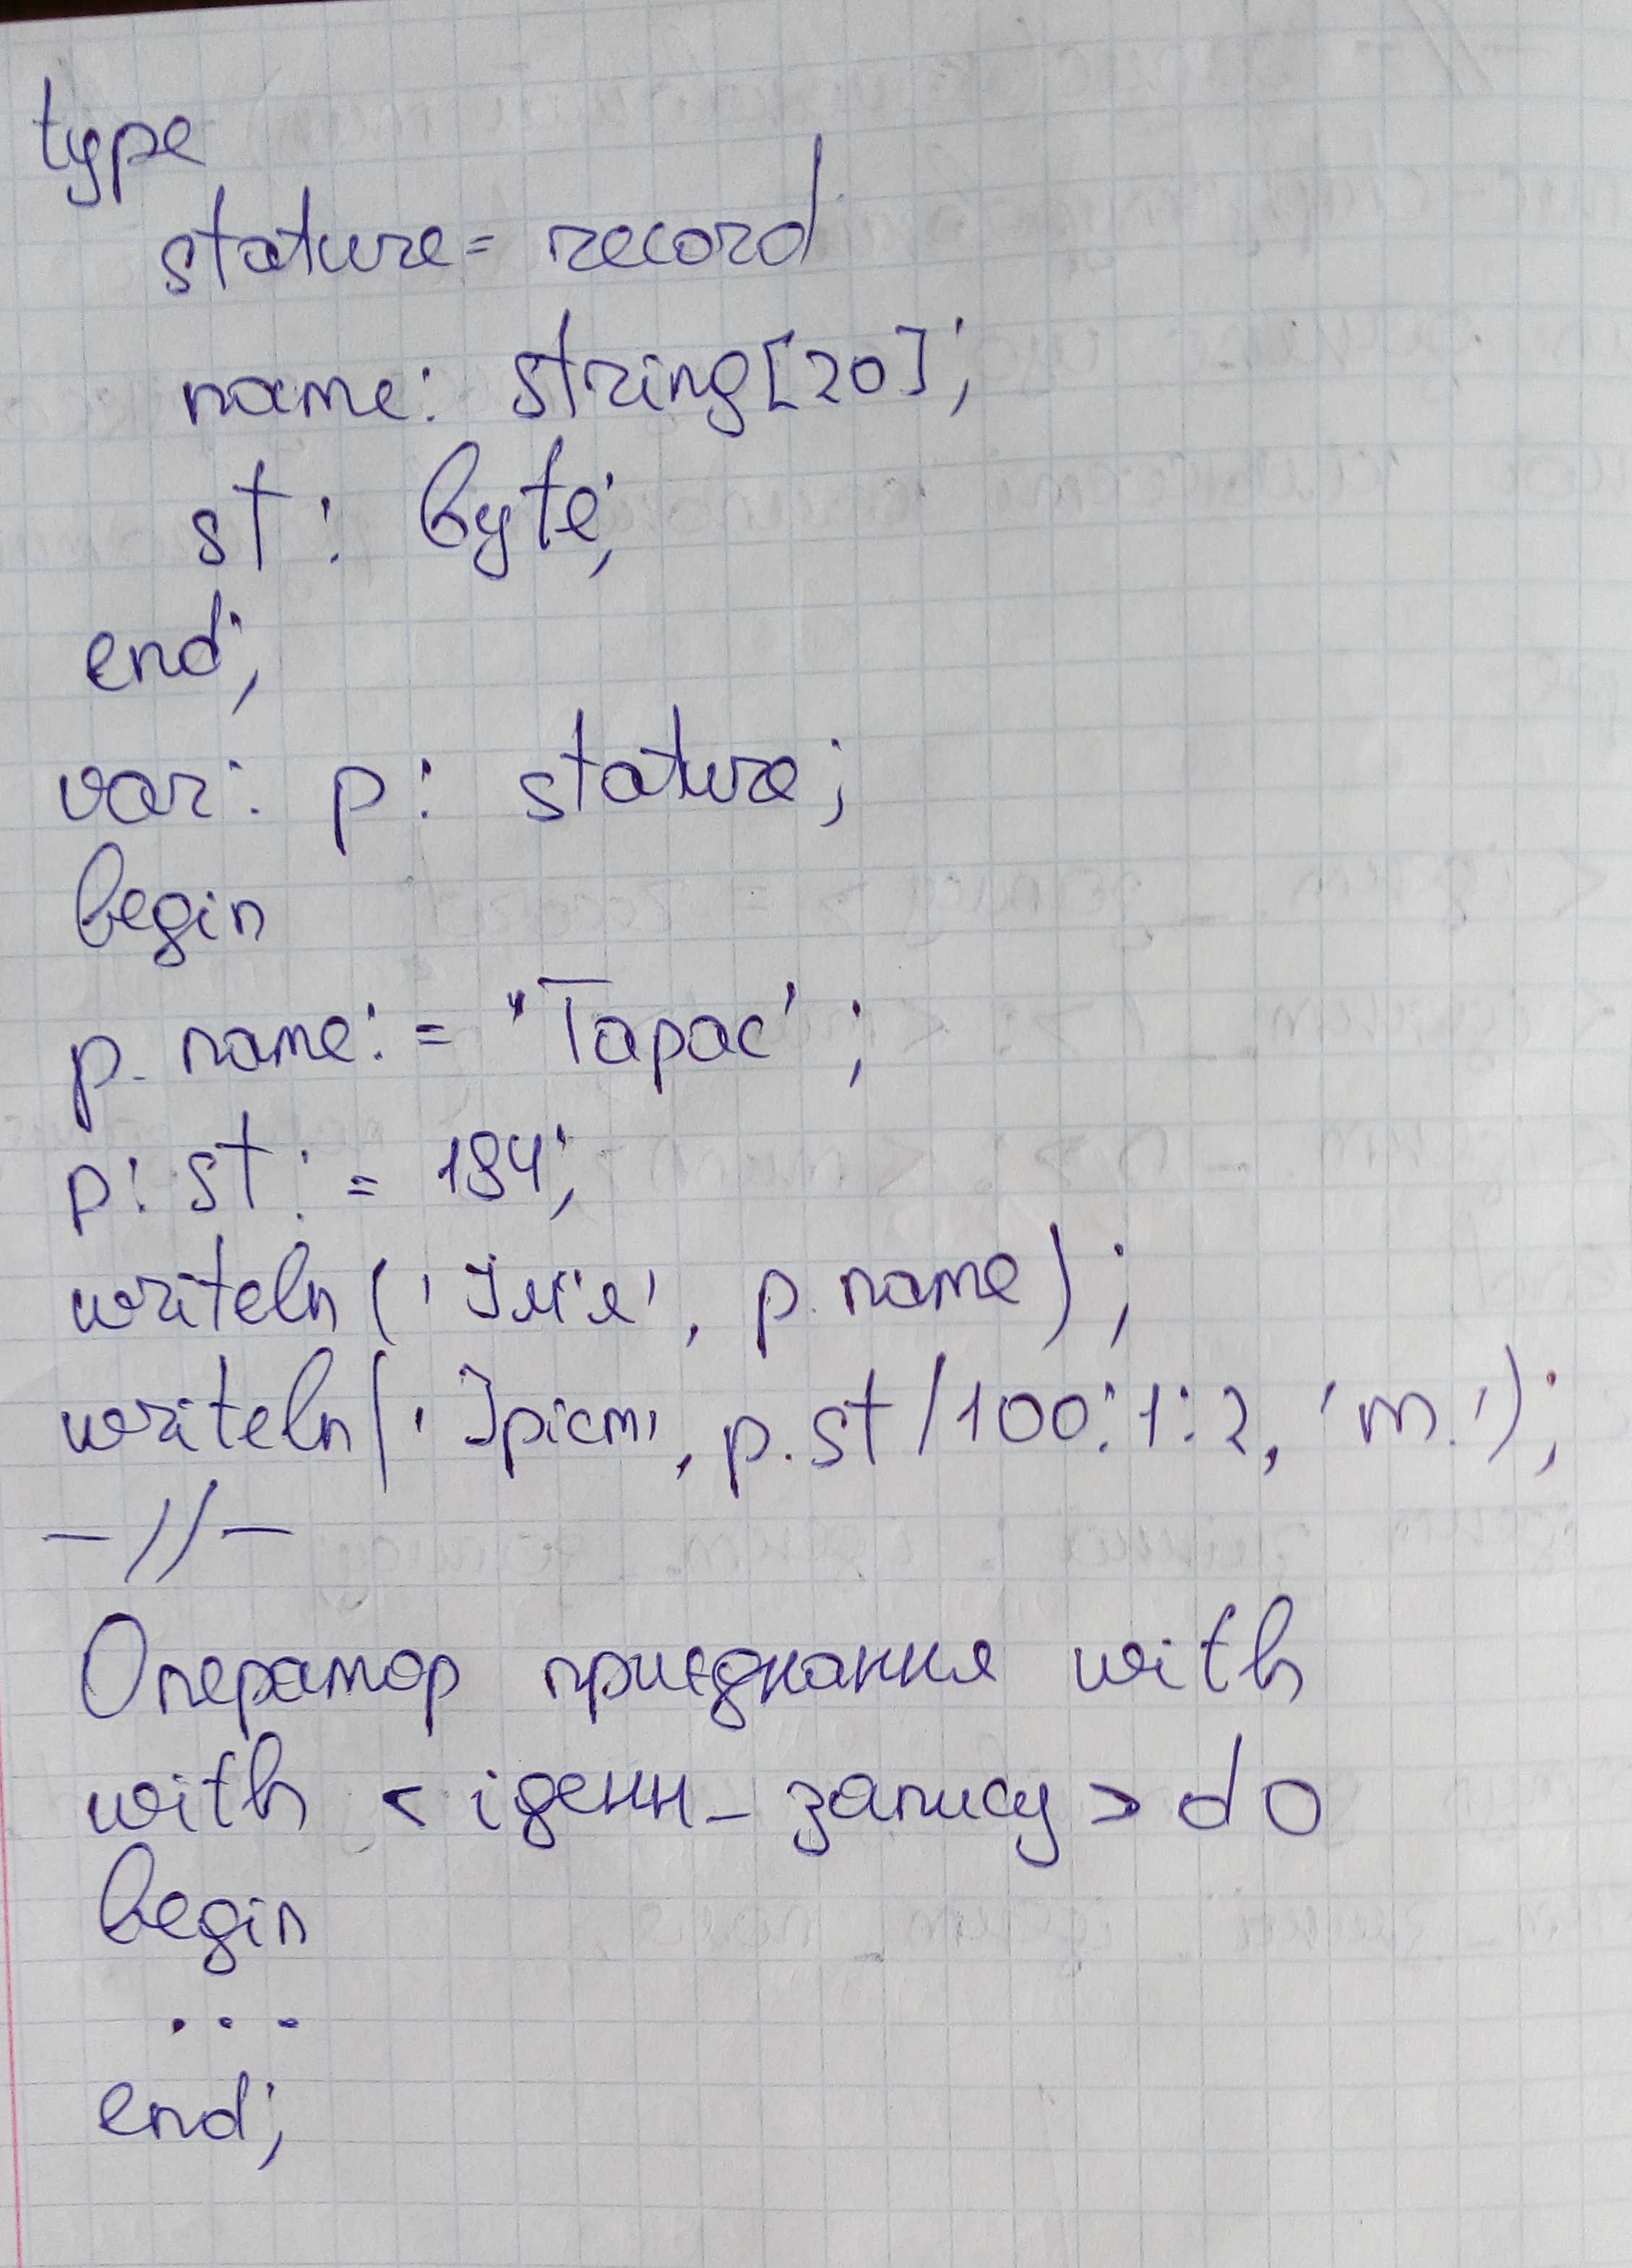 type
stature= record
name: string[20];
st: byte;
end;
var: p: stature;
begin
p. name: = "Тарас' ;
p: st : = 184;
writeln ('Ім'я', p. name) ;
writeln ('Зріст', p. st /100:1:2, 'm.') ;
— // —
Оператор приєднання with
with < іденн_ запису > do
begin
...
end;